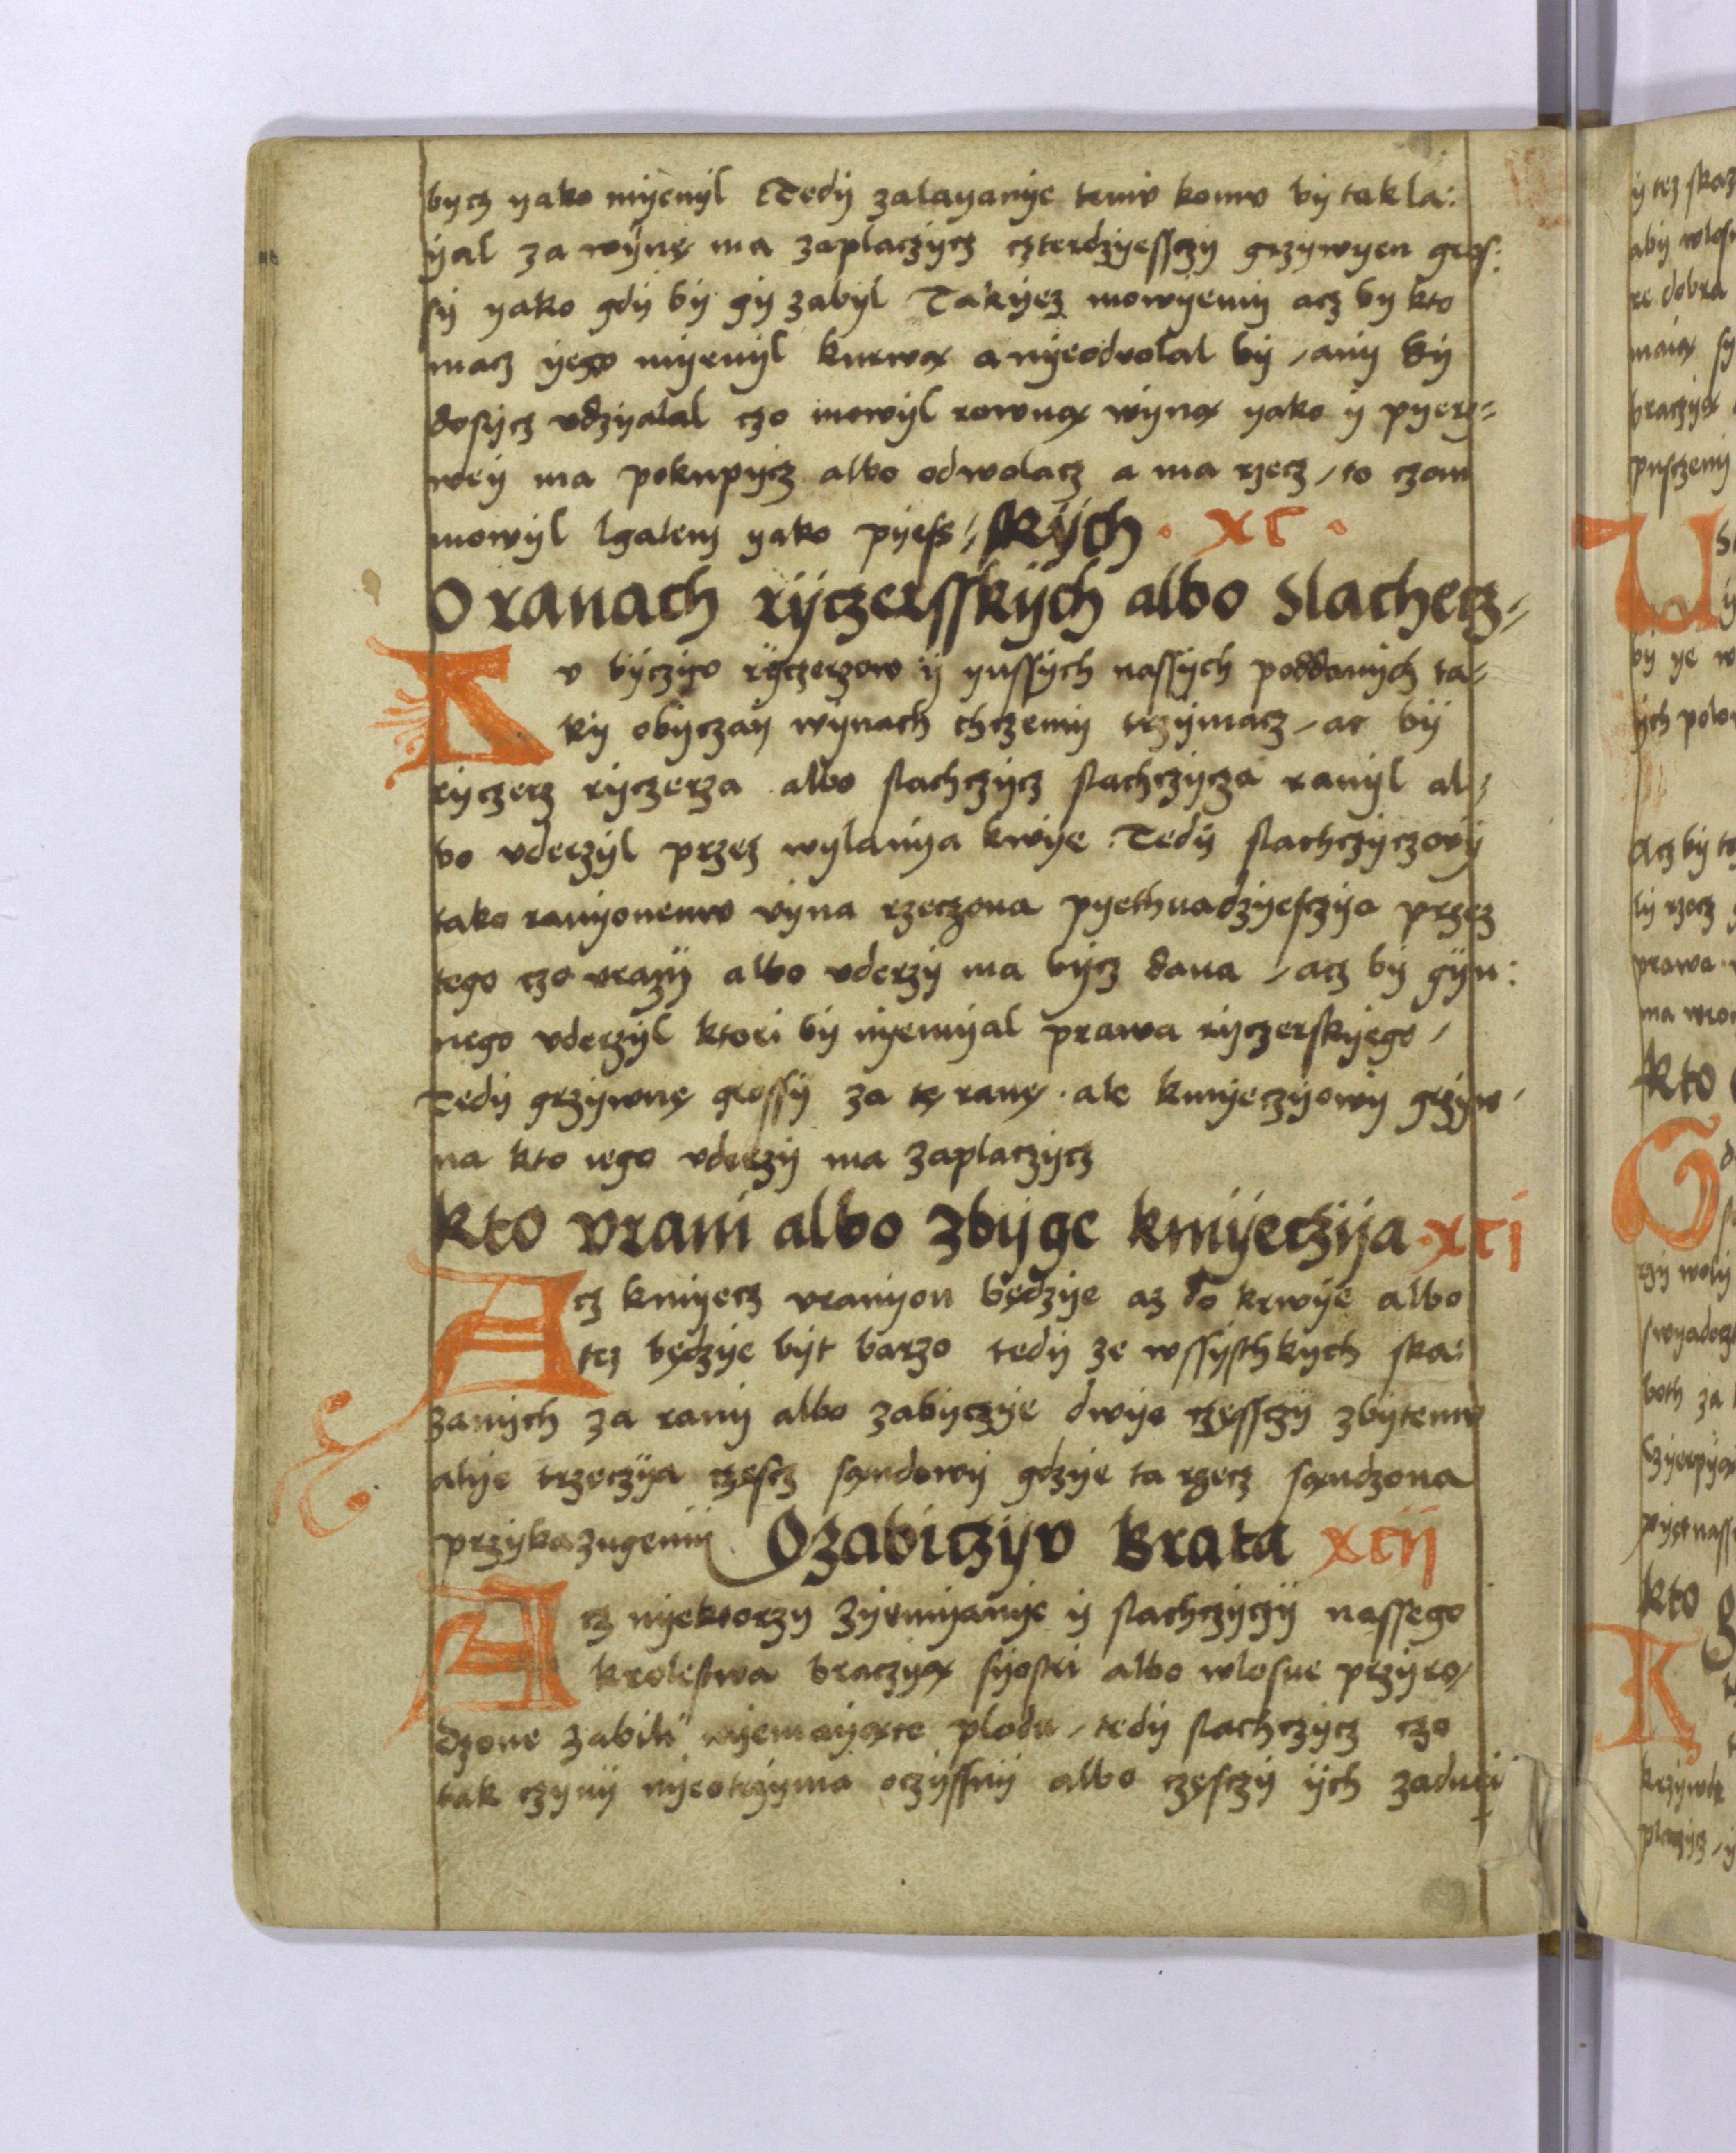 bycz yako myenyl Tedy zalayanye temv komv by takla:
yal za wynę ma zaplaczycz czterdzyessczy grzywyen gros:
sy yako gdy by gy zabyl Takyez mowyemy acz by kto
macz yego myenyl kurwą a nyeodvolal by / any by
dosycz vdzyalal czo mowyl rowną wyną yako y pyerz=
wey ma pokupycz albo odwolacz a ma rzecz / to czom
mowyl lgalem yako pyess / skych · xc ·
O ranach ryczersskych albo slachecz=
Kv byczyo ryczerzow y ynssych nassych poddanych ta=
ky obyczay wynach chczemy trzymacz / ac by
ryczerz ryczerza albo slachczycz slachczycza ranyl al=
bo vderzyl przez wylanya krwye Tedy slachczyczovy
tako ranyonemv vyna rzeczona pyethnadzyesczya przez
tego czo vrazy albo vderzy ma bycz dana / acz by gyn:
nego vderzyl ktori by nyemyal prawa ryczerskyego /
Tedy grzywnę grossy za tę ranę · ale kmyeczyowy grzyw /
na kto iego vderzy ma zaplaczycz
kto vrani albo zbyge kmyeczya xci
Acz kmyecz vranyon będzye az do krwye albo
tez będzye byt barzo tedy ze wssysthkych ska:
zanych za rany albo zabyczye dwye częssczy zbytemv
alye trzeczya częscz sąndowy gdzye ta rzecz sąndzona
przykazugemy O zabiczyv brata xcij
Acz nyektorzy zyemyanye y slachczyczy nassego
krolestwa braczyą syostri albo wlosne przyro/
dzone zabili nyemayącte plodu / tedy slachczycz czo
tak czyny nyeotrzyma oczyssny albo częsczy ych zadnei